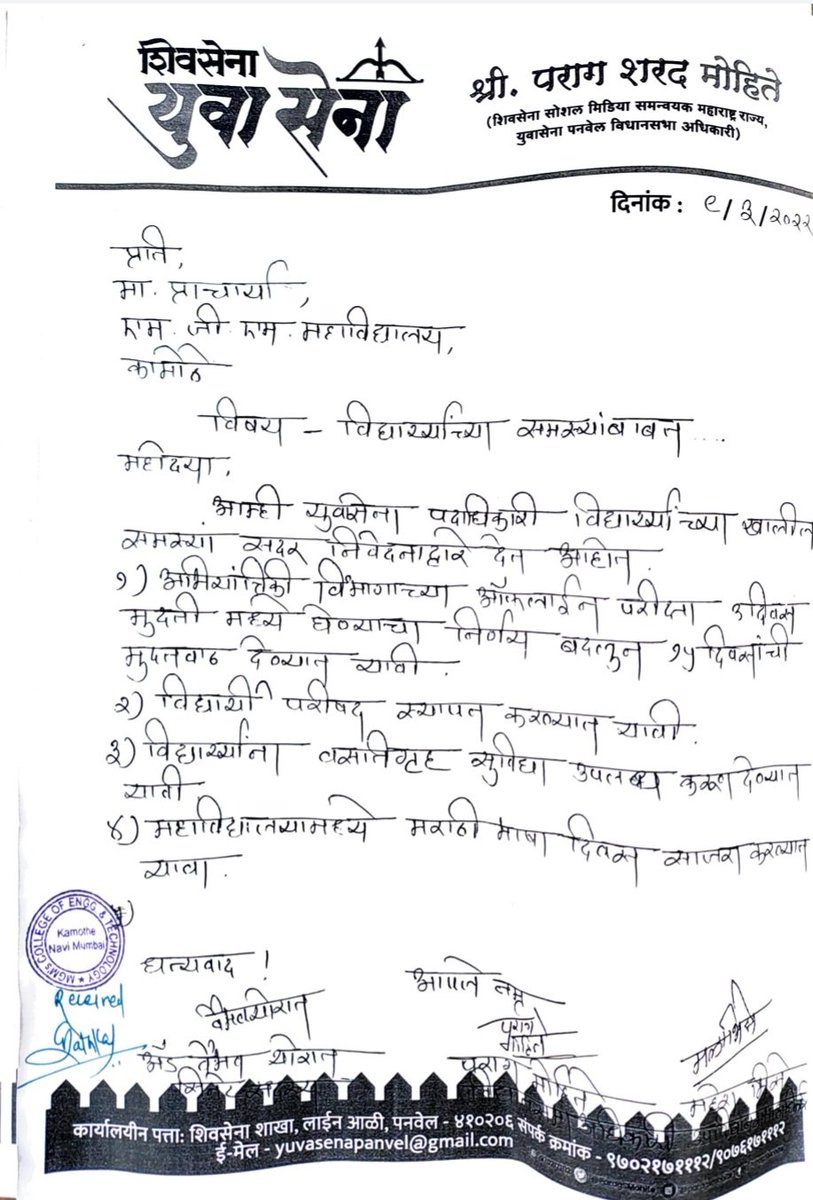 शिवसेना
युवा सेना
श्री. पराग शरद मोहिते
(शिवसेना सोशल मिडिया समन्वयक महाराष्ट्र राज्य,
युवासेना पनवेल विधानसभा अधिकारी)
दिनांक : ९/३/२०२२
प्रति,
मा. प्राचार्या,
एम. जी. एम. महाविद्यालय,
कामोठे
विषय - विद्यार्थ्यांच्या समस्यांबाबत ....
महोदया,
आम्ही युवासेना पदाधिकारी विद्यार्थ्यांच्या खालील
समस्यां सदर निवेदनाद्वारे देत आहोत.
१) अभियांत्रिकी विभागाच्या ऑफलाईन परीक्षा ३ दिवस
मुदती मध्ये घेण्याचा निर्णय बदलून १५ दिवसांची
मुदतवाढ देण्यात यावी.
२) विद्यार्थी परीषद स्थापन करण्यात यावी.
३) विद्यार्थ्यांना वसतिगृह सुविधा उपलब्ध करून देण्यात
यावी
४) महाविद्यालयामध्ये मराठी भाषा दिवस साजरा करण्यात
यावा.
MGM'S COLLEGE OF ENGG. & TECHNOLOGY
Kamothe
Navi Mumbai
Received
धन्यवाद !
आपले नम्र
पराग
मोहिते
अॅड वैभव थोरात
पराग मोहिते
कार्यालयीन पत्ता: शिवसेना शाखा, लाईन आळी, पनवेल - ४१०२०६ संपर्क क्रमांक - ९७०२१७१११२/९०७६१७१११२
ई-मेल - yuvasenapanvel@gmail.com